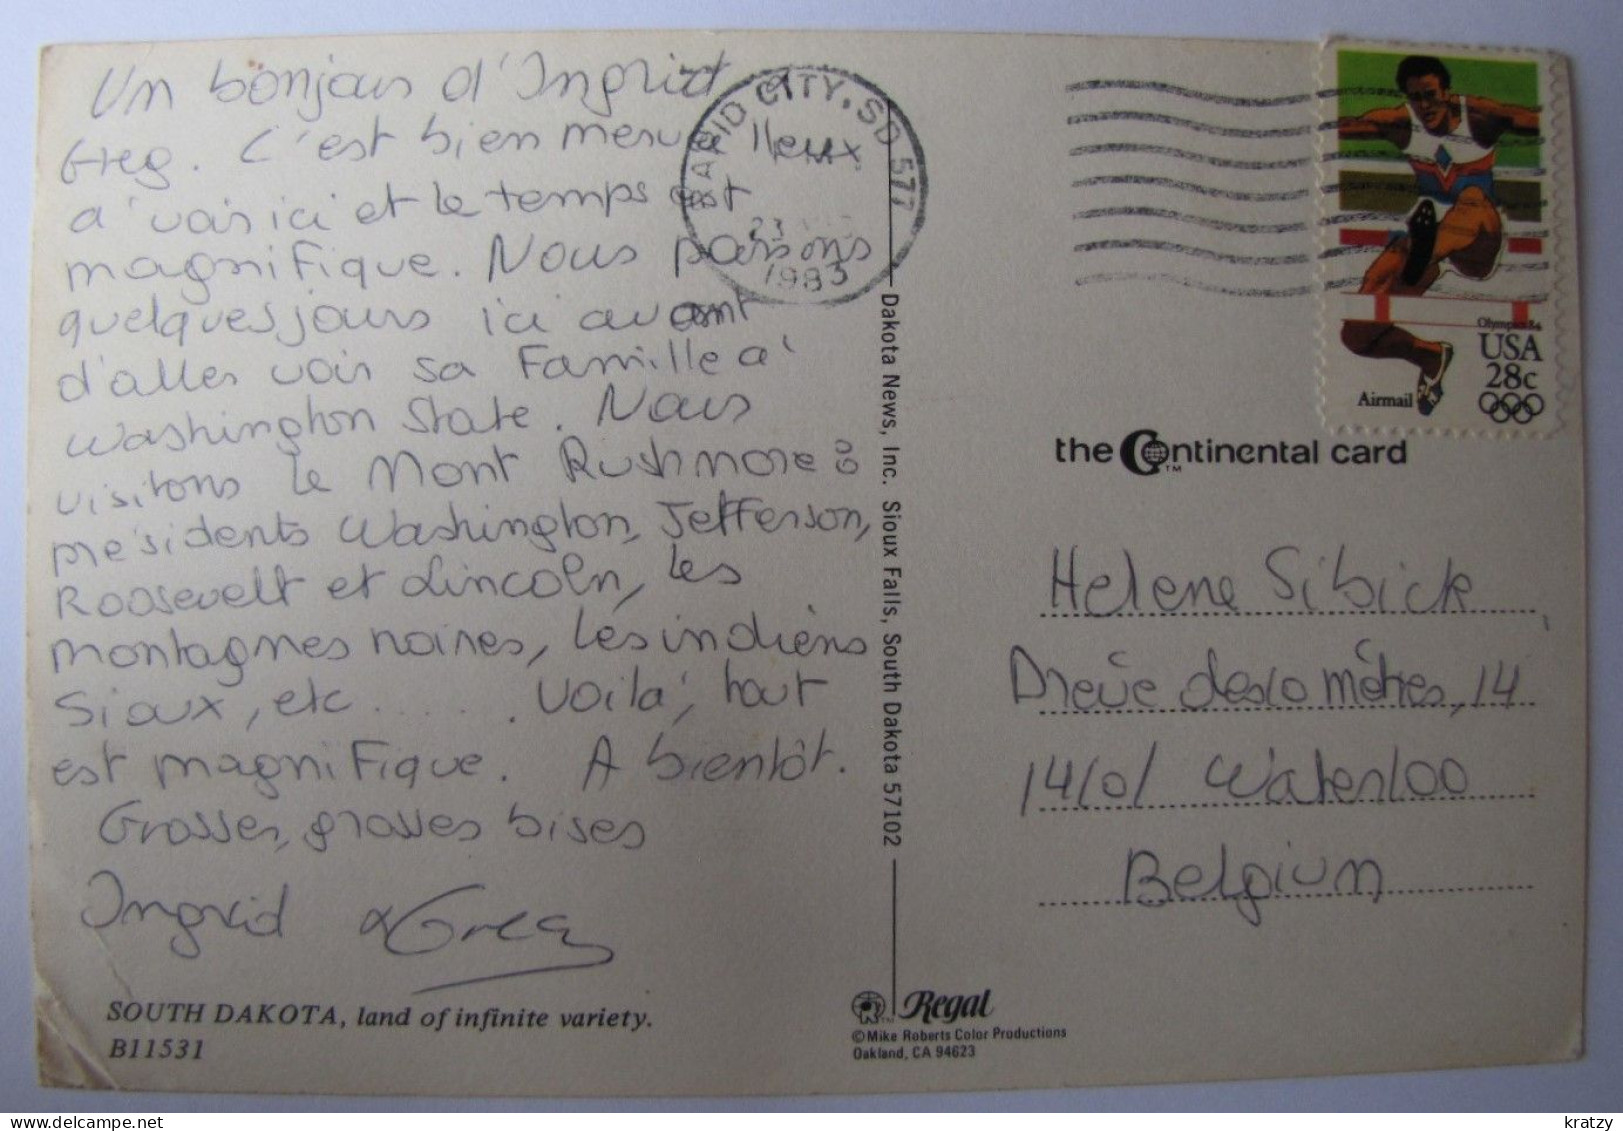 Un bonjour d'Ingrid
Greg. C'est bien merveilleux
d'voir ici et le temps est
magnifique. Nous passons
quelques jours ici avant
d'aller voir sa famille à
Washington State. Nous
visitons le Mont Rushmore:
présidents Washington, Jefferson,
Roosevelt et Lincoln, les
montagnes noires, les indiens
Sioux, etc...... Voilà, tout
est magnifique. A bientôt.
Grosses, grosses bises
Ingrid & Greg
SOUTH DAKOTA, land of infinite variety.
B11531
Dakota News, Inc. Sioux Falls, South Dakota 57102
RAPID CITY, SD 577
23
1983
Olympics 84
USA
28c
Airmail
the Continental card
TM
Helene Sibick
Drève des 10 mètres, 14
1410 Waterloo
Belgium
Regal
© Mike Roberts Color Productions
Oakland, CA 94623
kratzy